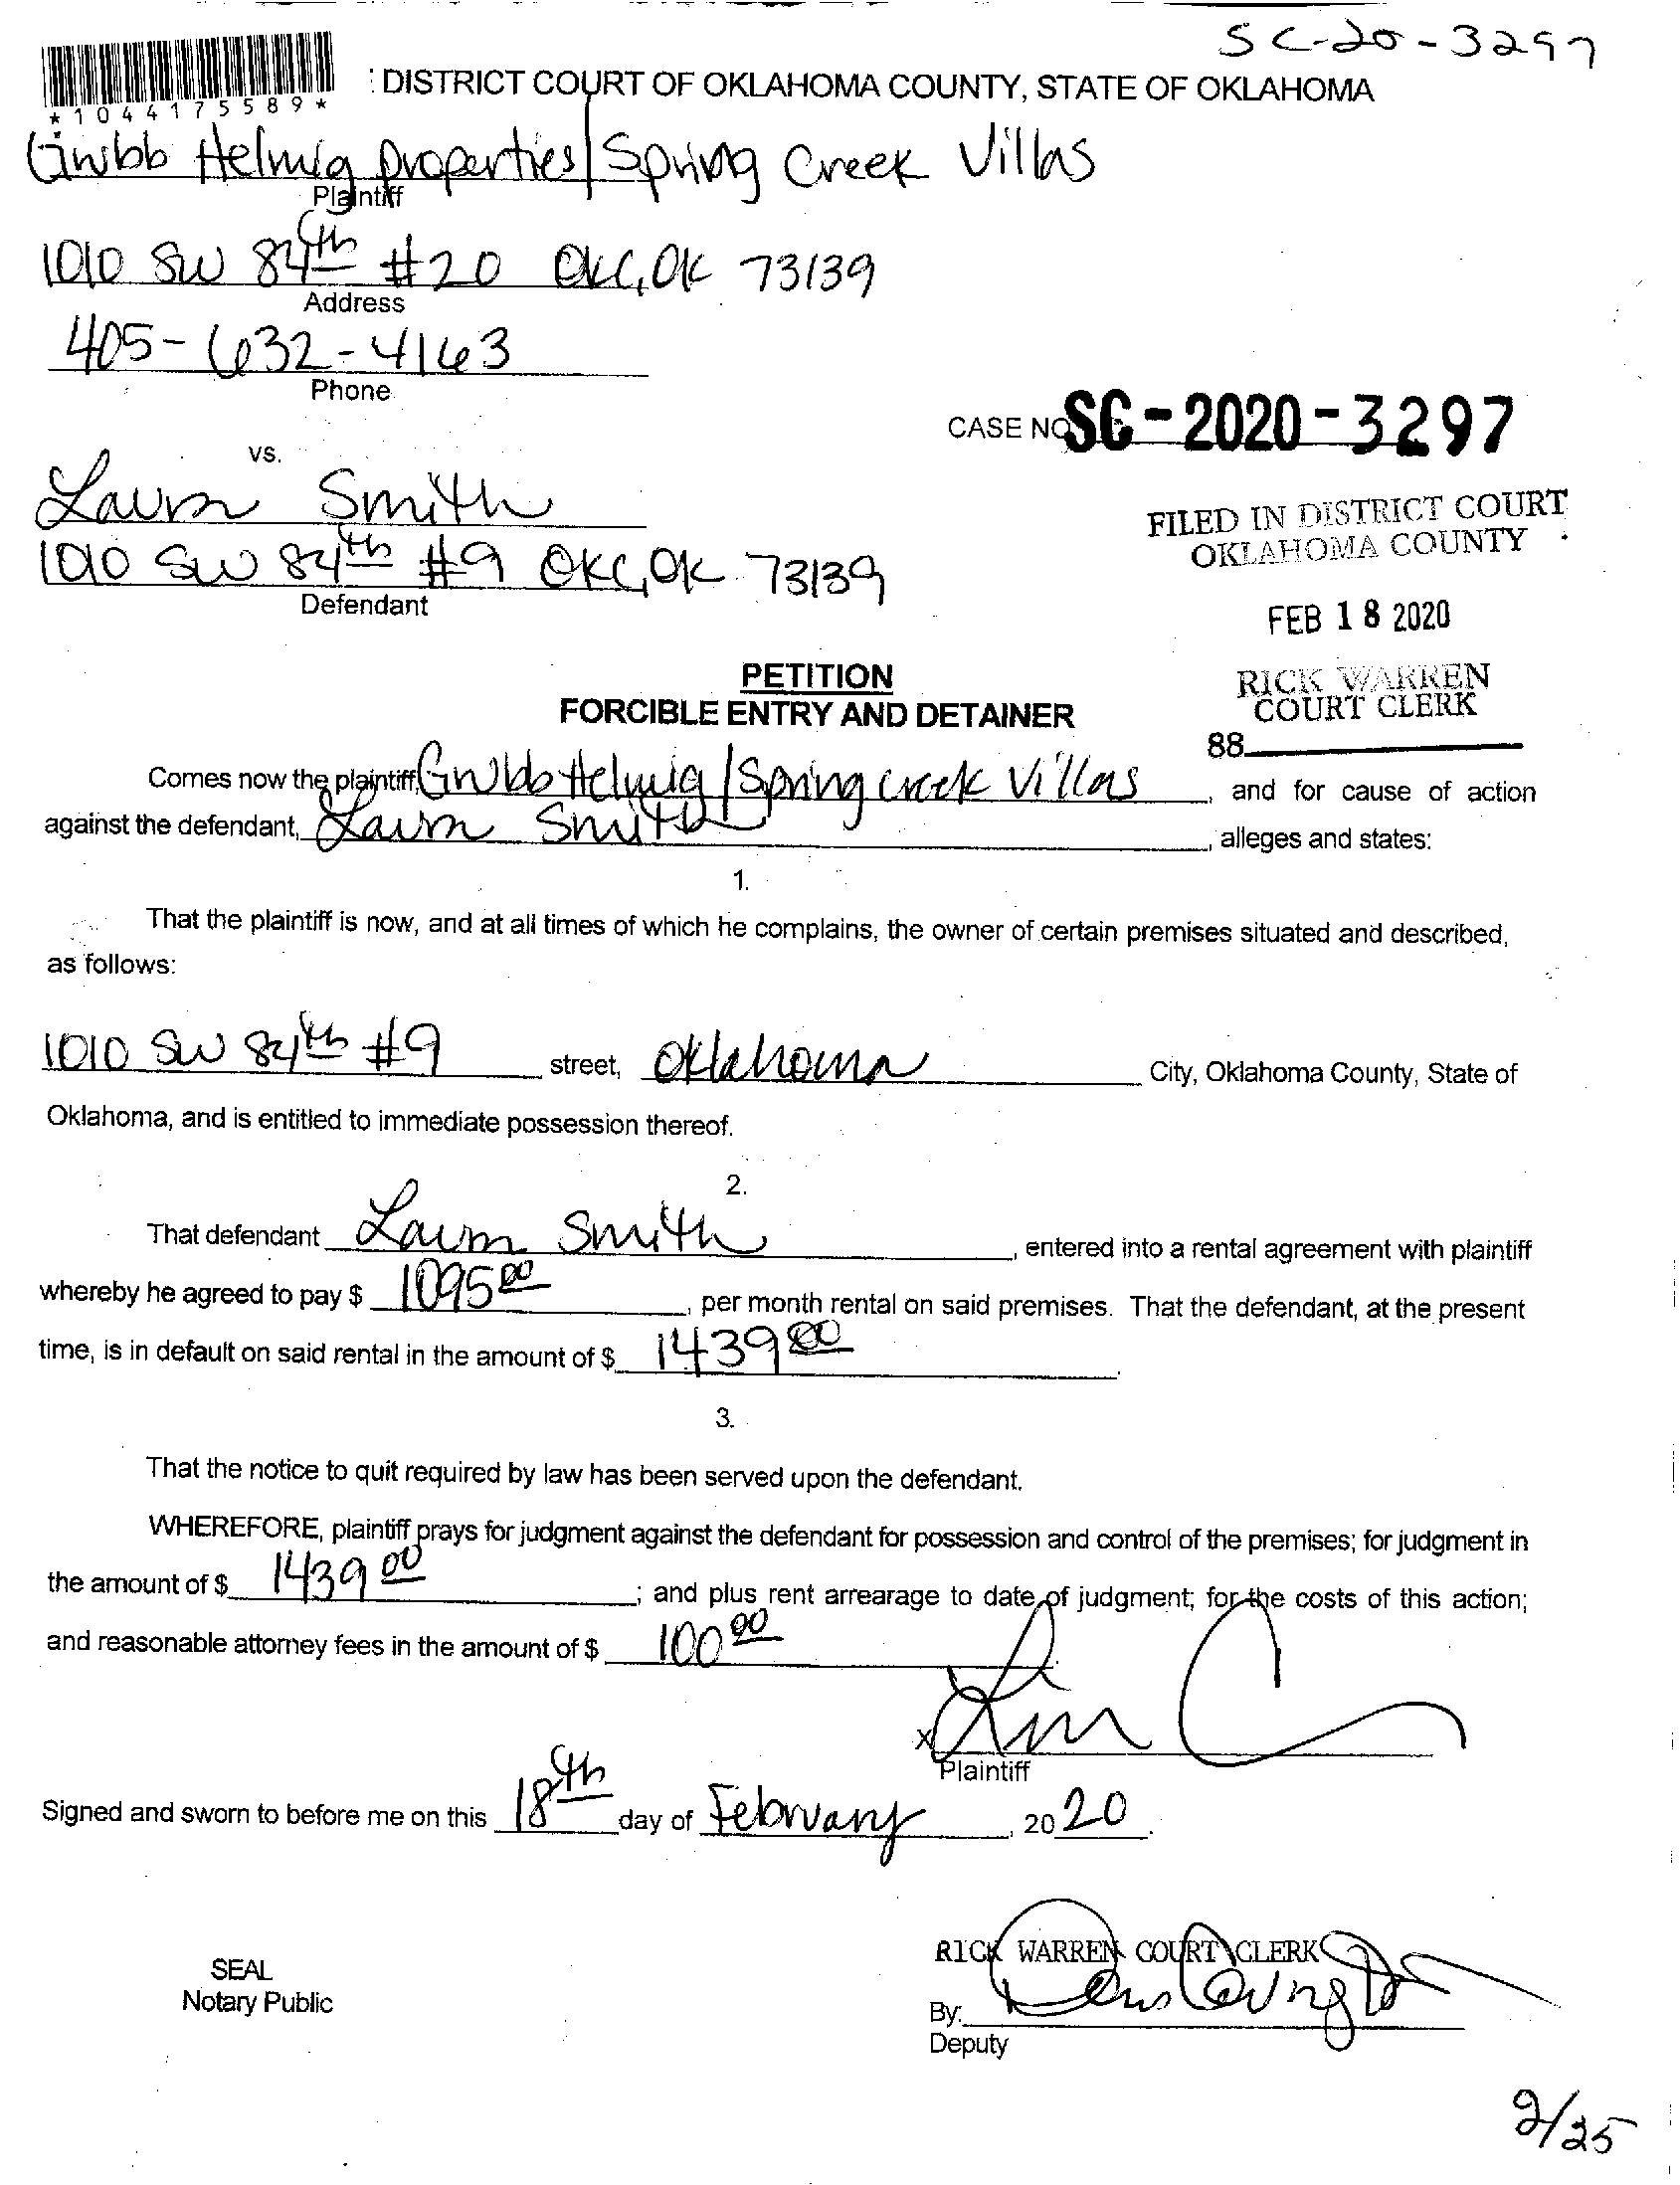 SC-20-3297
*1044175589*
DISTRICT COURT OF OKLAHOMA COUNTY, STATE OF OKLAHOMA
Grubb Helmig properties/Spring Creek Villas
Plaintiff
1010 SW 84th #20 OKC, OK 73139
Address
405-632-4163
Phone
CASE NO SC-2020-3297
vs.
Laura Smith
FILED IN DISTRICT COURT
OKLAHOMA COUNTY
1010 SW 84th #9 OKC, OK 73139
Defendant
FEB 18 2020
PETITION
RICK WARREN
COURT CLERK
FORCIBLE ENTRY AND DETAINER
88
Comes now the plaintiff, Grubb Helmig/Spring Creek Villas, and for cause of action
against the defendant, Laura Smith, alleges and states:
1.
That the plaintiff is now, and at all times of which he complains, the owner of certain premises situated and described,
as follows:
1010 SW 84th #9 street, Oklahoma City, Oklahoma County, State of
Oklahoma, and is entitled to immediate possession thereof.
2.
That defendant Laura Smith, entered into a rental agreement with plaintiff
whereby he agreed to pay $ 1095 00, per month rental on said premises. That the defendant, at the present
time, is in default on said rental in the amount of $ 1439 00.
3.
That the notice to quit required by law has been served upon the defendant.
WHEREFORE, plaintiff prays for judgment against the defendant for possession and control of the premises; for judgment in
the amount of $ 1439 00; and plus rent arrearage to date of judgment; for the costs of this action;
and reasonable attorney fees in the amount of $ 100 00
X
Plaintiff
Signed and sworn to before me on this 18th day of February, 2020.
RICK WARREN COURT CLERK
SEAL
Notary Public
By:
Deputy
2/25